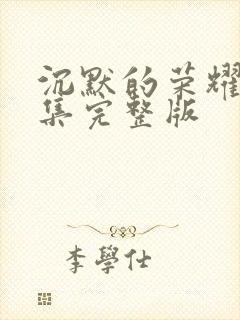 沉默的荣耀
集完整版
李學仕